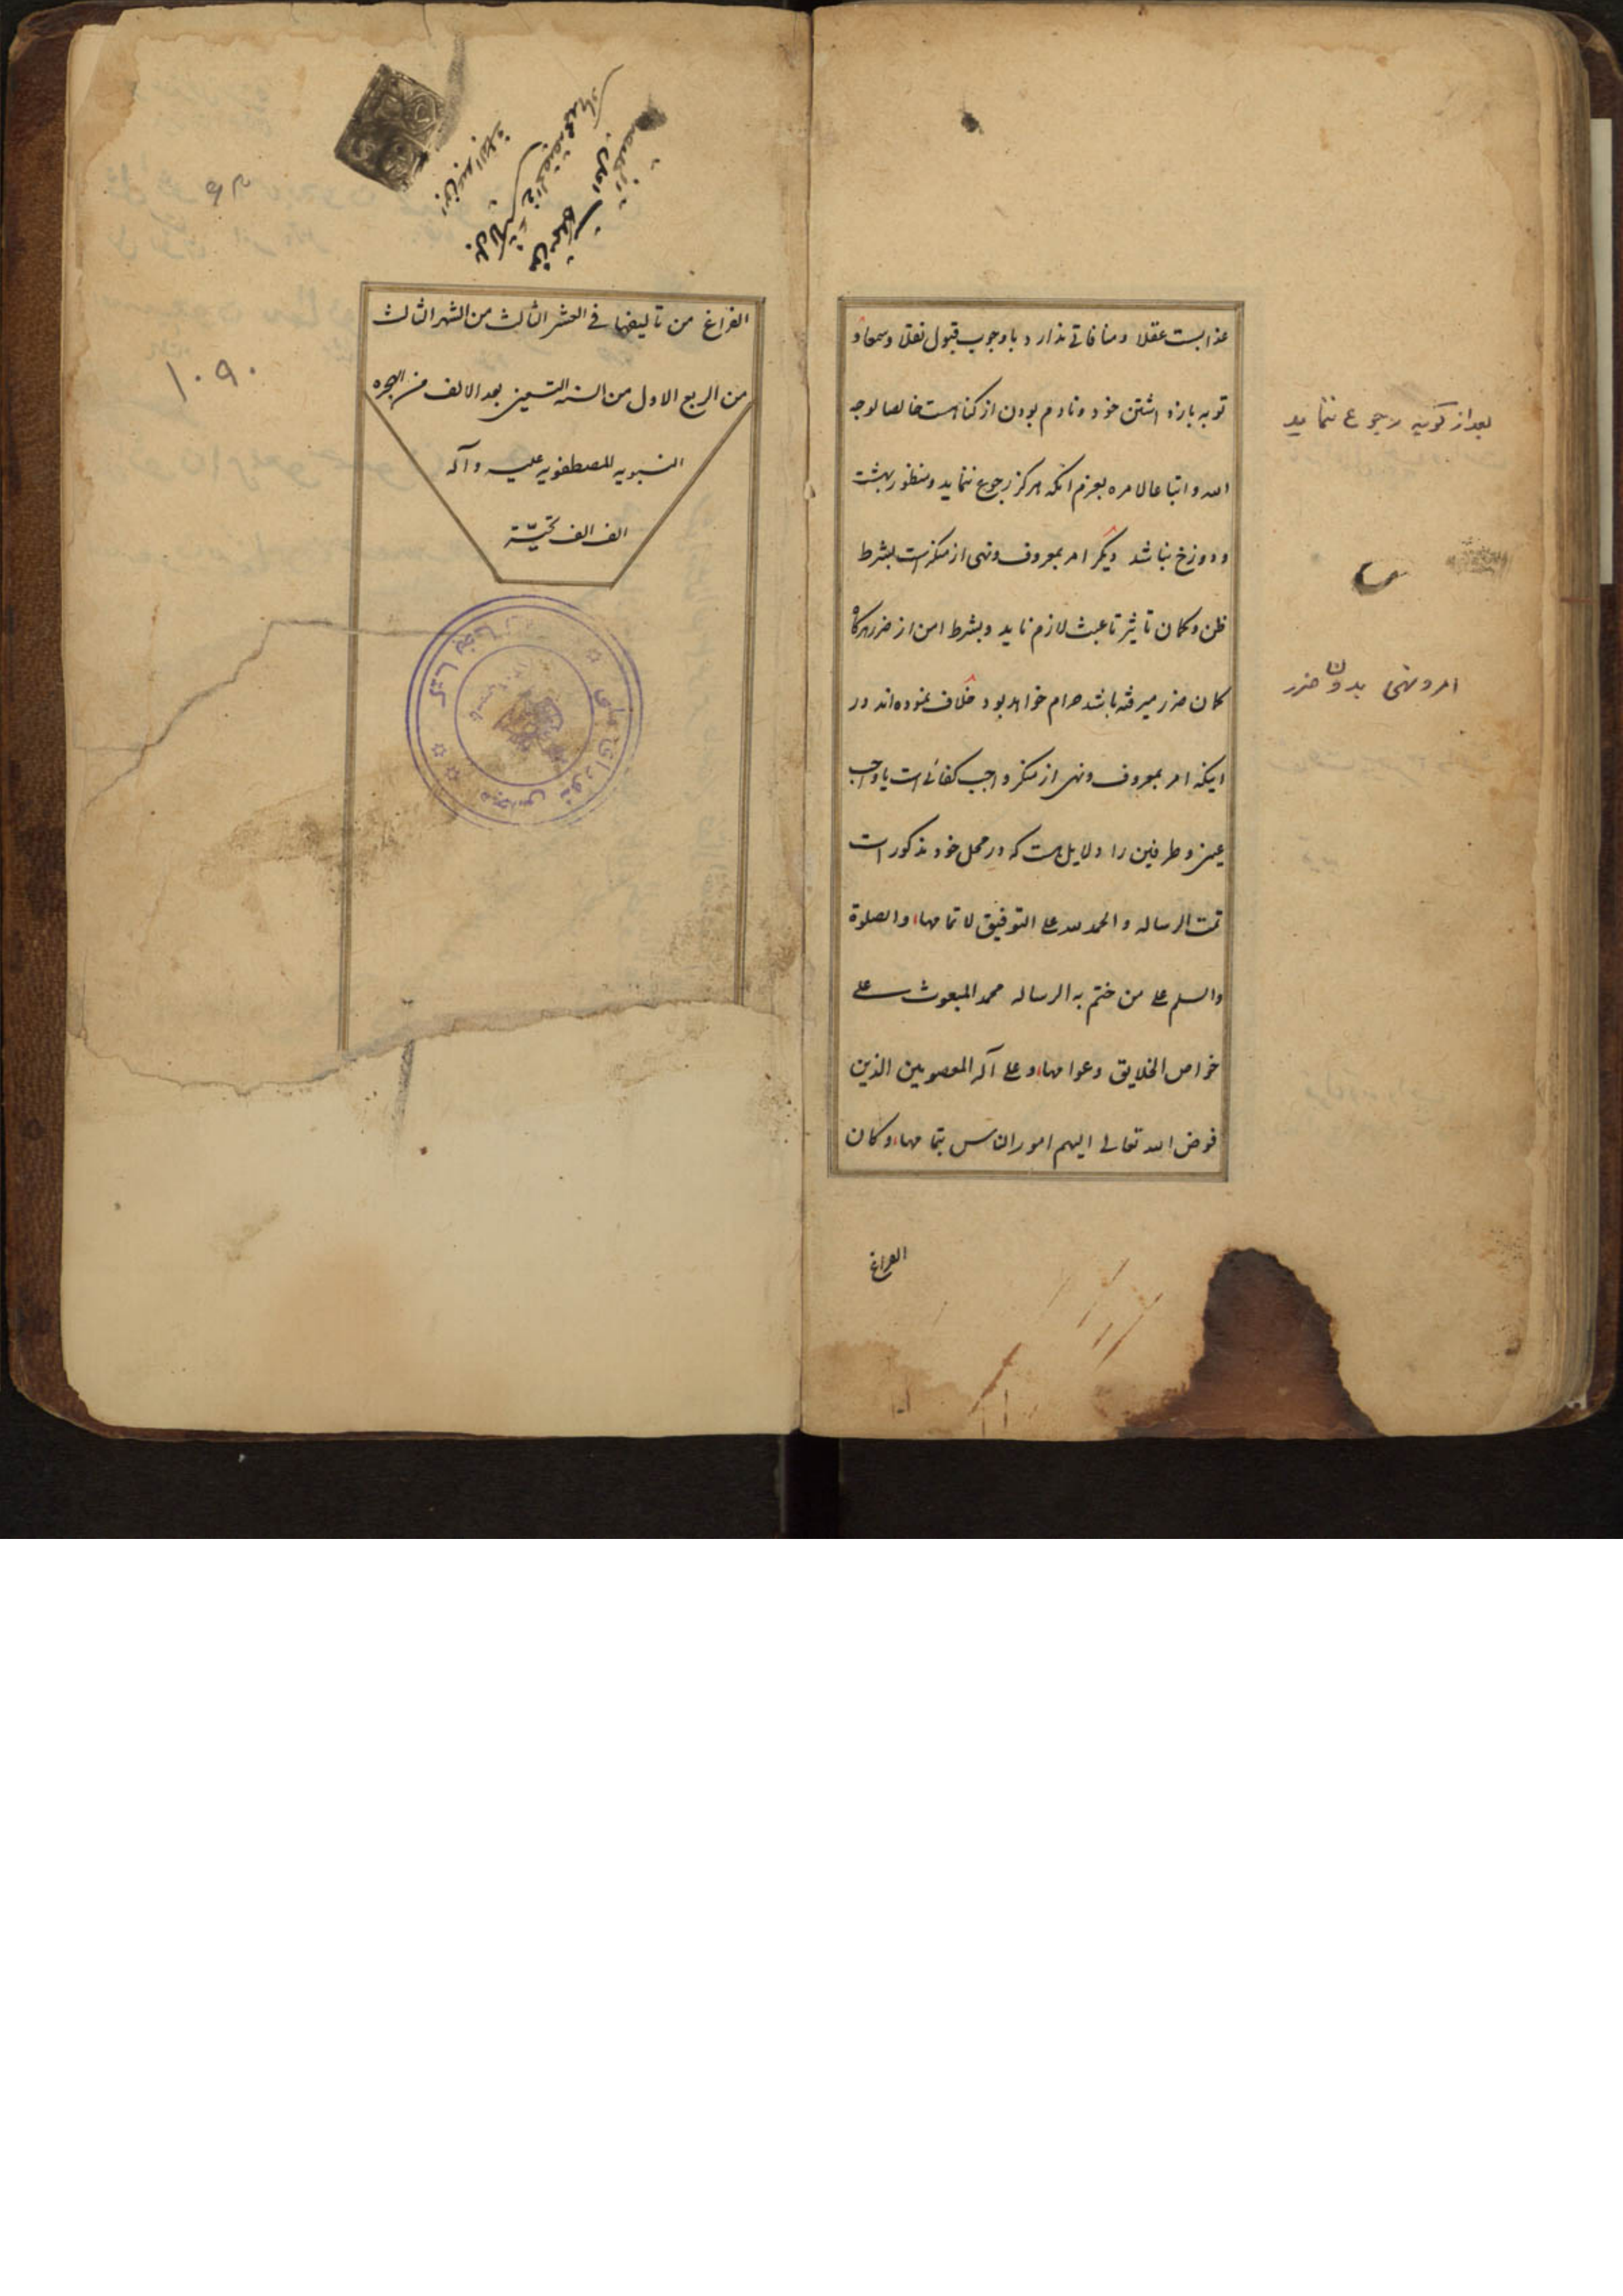 عذابست عقلا و منافاتی ندارد با وجوب قبول نقلا و سمعا و
توبه بازداشتن خود و نادم بودن از گناهست خالصا لوجه
الله و اتباعا لامره بعزم آنکه هرگز رجوع ننماید و منظور بهشت
و دوزخ نباشد دیگر امر بمعروف و نهی از منکرست بشرط
ظن و گمان تاثیر تا عبث لازم ناید و بشرط امن از ضرر هرگاه
گمان ضرر میرفته باشد حرام خواهد بود خلاف نموده‌اند در
اینکه امر بمعروف و نهی از منکر واجب کفائی است یا واجب
عینی و طرفین را دلایل هست که در محل خود مذکور است
تمت الرساله و الحمد لله علی التوفیق لاتمامها و الصلوة
والسلم علی من ختم به الرساله محمد المبعوث علی
خواص الخلایق و عوامها و علی آله المعصومین الذین
فوض الله تعالی الیهم امور الناس بتمامها و کان
الفراغ
بعد از توبه رجوع ننماید
امر و نهی بدون ضرر
الفراغ من تالیفها فی العشر الثالث من الشهر الثالث
من الربع الاول من السنه التسعین بعد الالف من الهجره
النبویه المصطفویه علیه و آله
الف الف تحیّة
۱۰۹۰
مجلس شورای ملی